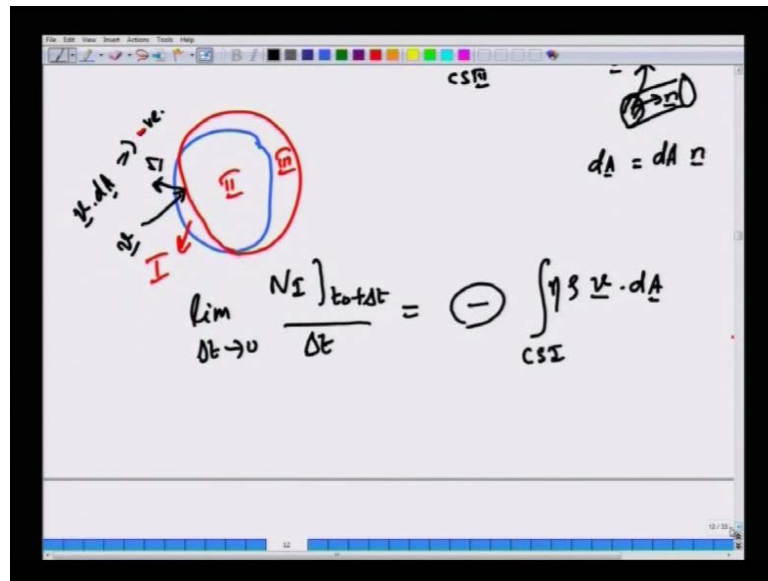 File Edit View Insert Actions Tools Help
CSIII
n
dA = dA n
v . dA => -ve.
n
v
I
II
III
lim Δt→0 NI]t0+Δt / Δt = (-) ∫CSI ηρ v . dA
12 / 33
12